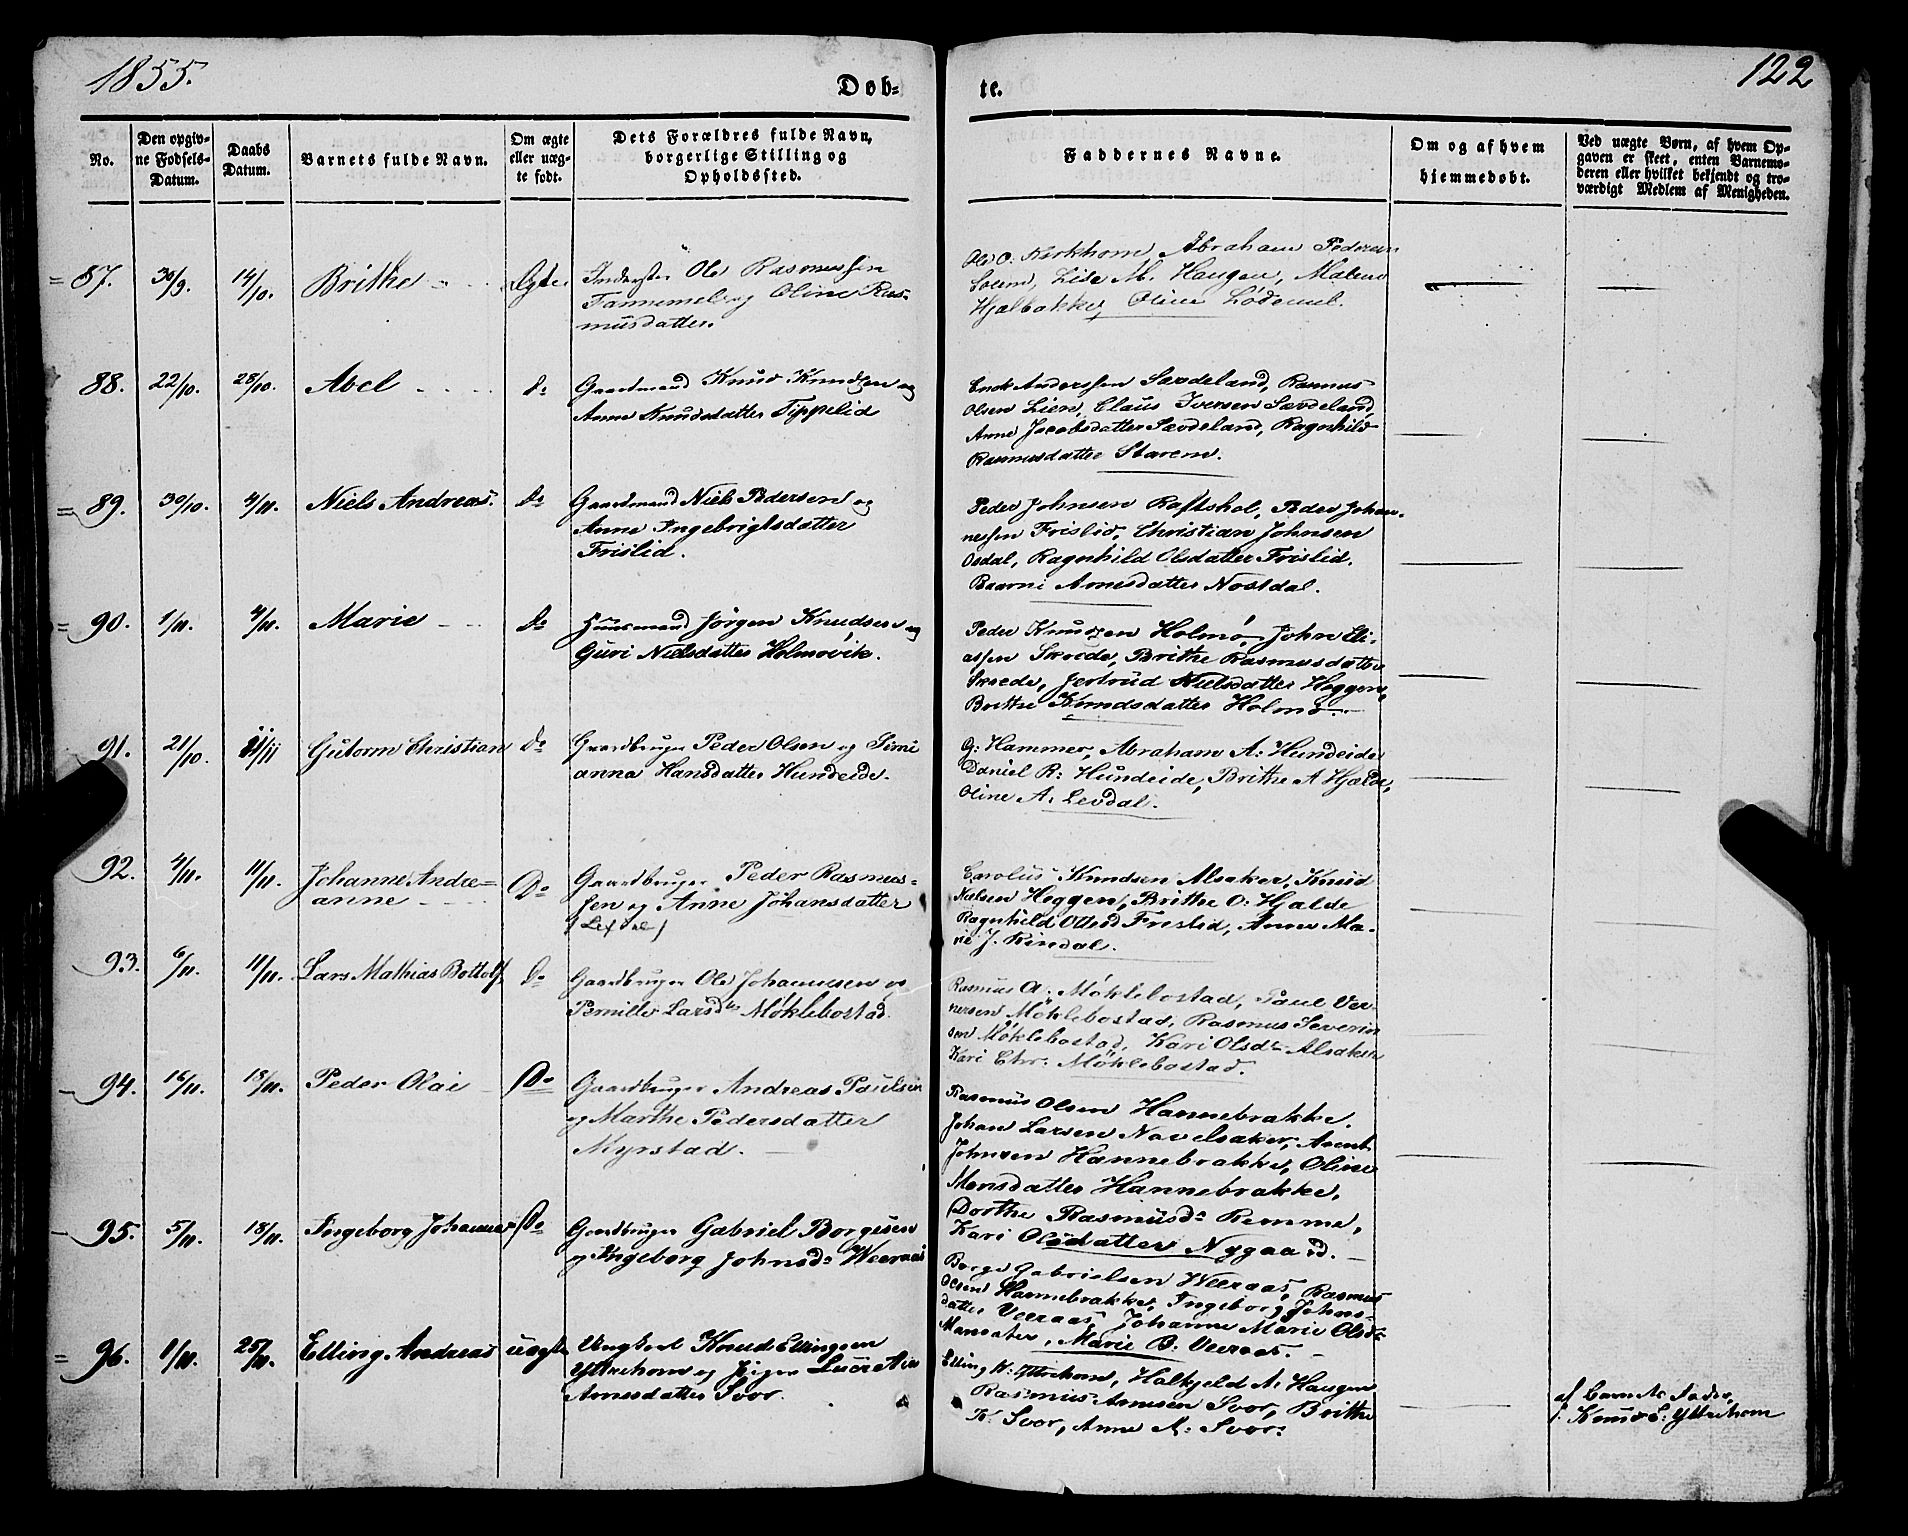 1855.
Døb-
te.
122
No.
Den opgiv-
ne Fødsels-
Datum.
Daabs
Datum.
Barnets fulde Navn.
Om ægte
eller uæg-
te født.
Dets Forældres fulde Navn,
borgerlige Stilling og
Opholdssted.
Faddernes Navne.
Om og af hvem
hjemmedøbt.
Ved uægte Børn, af hvem Op-
gaven er skeet, enten Barnemo-
deren eller hvilket bekjendt og tro-
værdigt Medlem af Menigheden.
87. 30/9. 14/10. Brithe Ægte
Inderster Ole Rasmussen
og Oline Ras-
musdatter.
Ole O. Kirkhorn, Abraham Pedersen
Soleim, Lise M. Haugen, Malene
Hjelbakke, Oline Lødemel.
88. 22/10. 28/10. Abel do
Gaardmand Knud Knudsen og
Anne Knudsdatter Tippelid
Enok Anderssen Sævdeland, Rasmus
Olsen Lien, Claus Iversen Sævdeland,
Anne Jacobsdatter Sævdeland, Ragnhild
Rasmusdatter Starem.
89. 30/10. 4/11. Niels Andreas. do
Gaardmand Niels Pedersen og
Anne Ingebrigtsdatter
Frislid.
Peder Johnsen Raftshol, Peder Johan-
nessen Frislid, Christian Johnsen
Osdal, Ragnhild Olsdatter Frislid.
Arnesdatter Nostdal.
90. 1/11. 4/11. Marie do
Huusmand Jørgen Knudsen og
Guri Nielsdatter Holmøvik.
Peder Knudsen Holmø, John Eli-
assen Skrede, Brithe Rasmusdatter
Skrede, Jertrud Nielsdatter Heggen,
Brithe Knudsdatter Holmø.
91. 21/10. 11/11 Gutorm Christian do
Gaardbruger Peder Olsen og Simi
anna Hansdatter Hundeide.
G: Hammer, Abraham A: Hundeide
Daniel R: Hundeide, Brithe A Hjelde,
Oline A. Levdal.
92. 4/11. 11/11. Johanne Andre=
anne Do
Gaardbruger Peder Rasmus-
sen og Anne Johansdatter
Carolus Knudsen Alsaker, Knud
Nielsen Heggen, Brithe O: Hjelde
Ragnhild Frislid, Anne Ma-
rie J. Rindal.
93. 6/11. 11/11. Lars Mathias Bottolf Do
Gaardbruger Ole Johannesen og
Pernille Larsdtr Møklebostad.
Rasmus A: Møklebostad, Paul Ver-
nersen Møklebostad, Rasmus Severin
sen Møklebostad, Kari Olsdr Alsaker
Kari Chr: Møklebostad.
94. 16/11. 18/11. Peder Olai Do
Gaardbruger Andreas Paulsen
og Marthe Pedersdatter
Myrstad.
Rasmus Olsen Hannebrække.
Johan Larsen Navelsaker, Arent
Johnsen Hannebrække, Oline
Monsdatter Hannebrække,
Dorthe Rasmusd: Remme,
Kari Olsdatter Nygaard.
95. 5/11. 18/11. Ingeborg Johanne Do
Gaardbruger Gabriel Børgesen
og Ingeborg Johnsd: Weeraas
Børge Gabrielsen Weeraas, Rasmus
Olsen Hannebrække, Ingeborg Johns-
datter Veeraas, Johanne Marie Olsd:
Marie B. Veeraas.
96. 1/11. 25/11. Elling Andreas uægte
Ungkarl Knud Ellingsen
Yttrehorn og Pigen
Arnesdatter Svor.
Elling K: Yttrehorn, Halkjeld A: Haugen
Rasmus Arnesen Svor, Brithe
K. Svor, Anne A: Svor:
af Barnets Fader,
Knud E: Yttrehorn